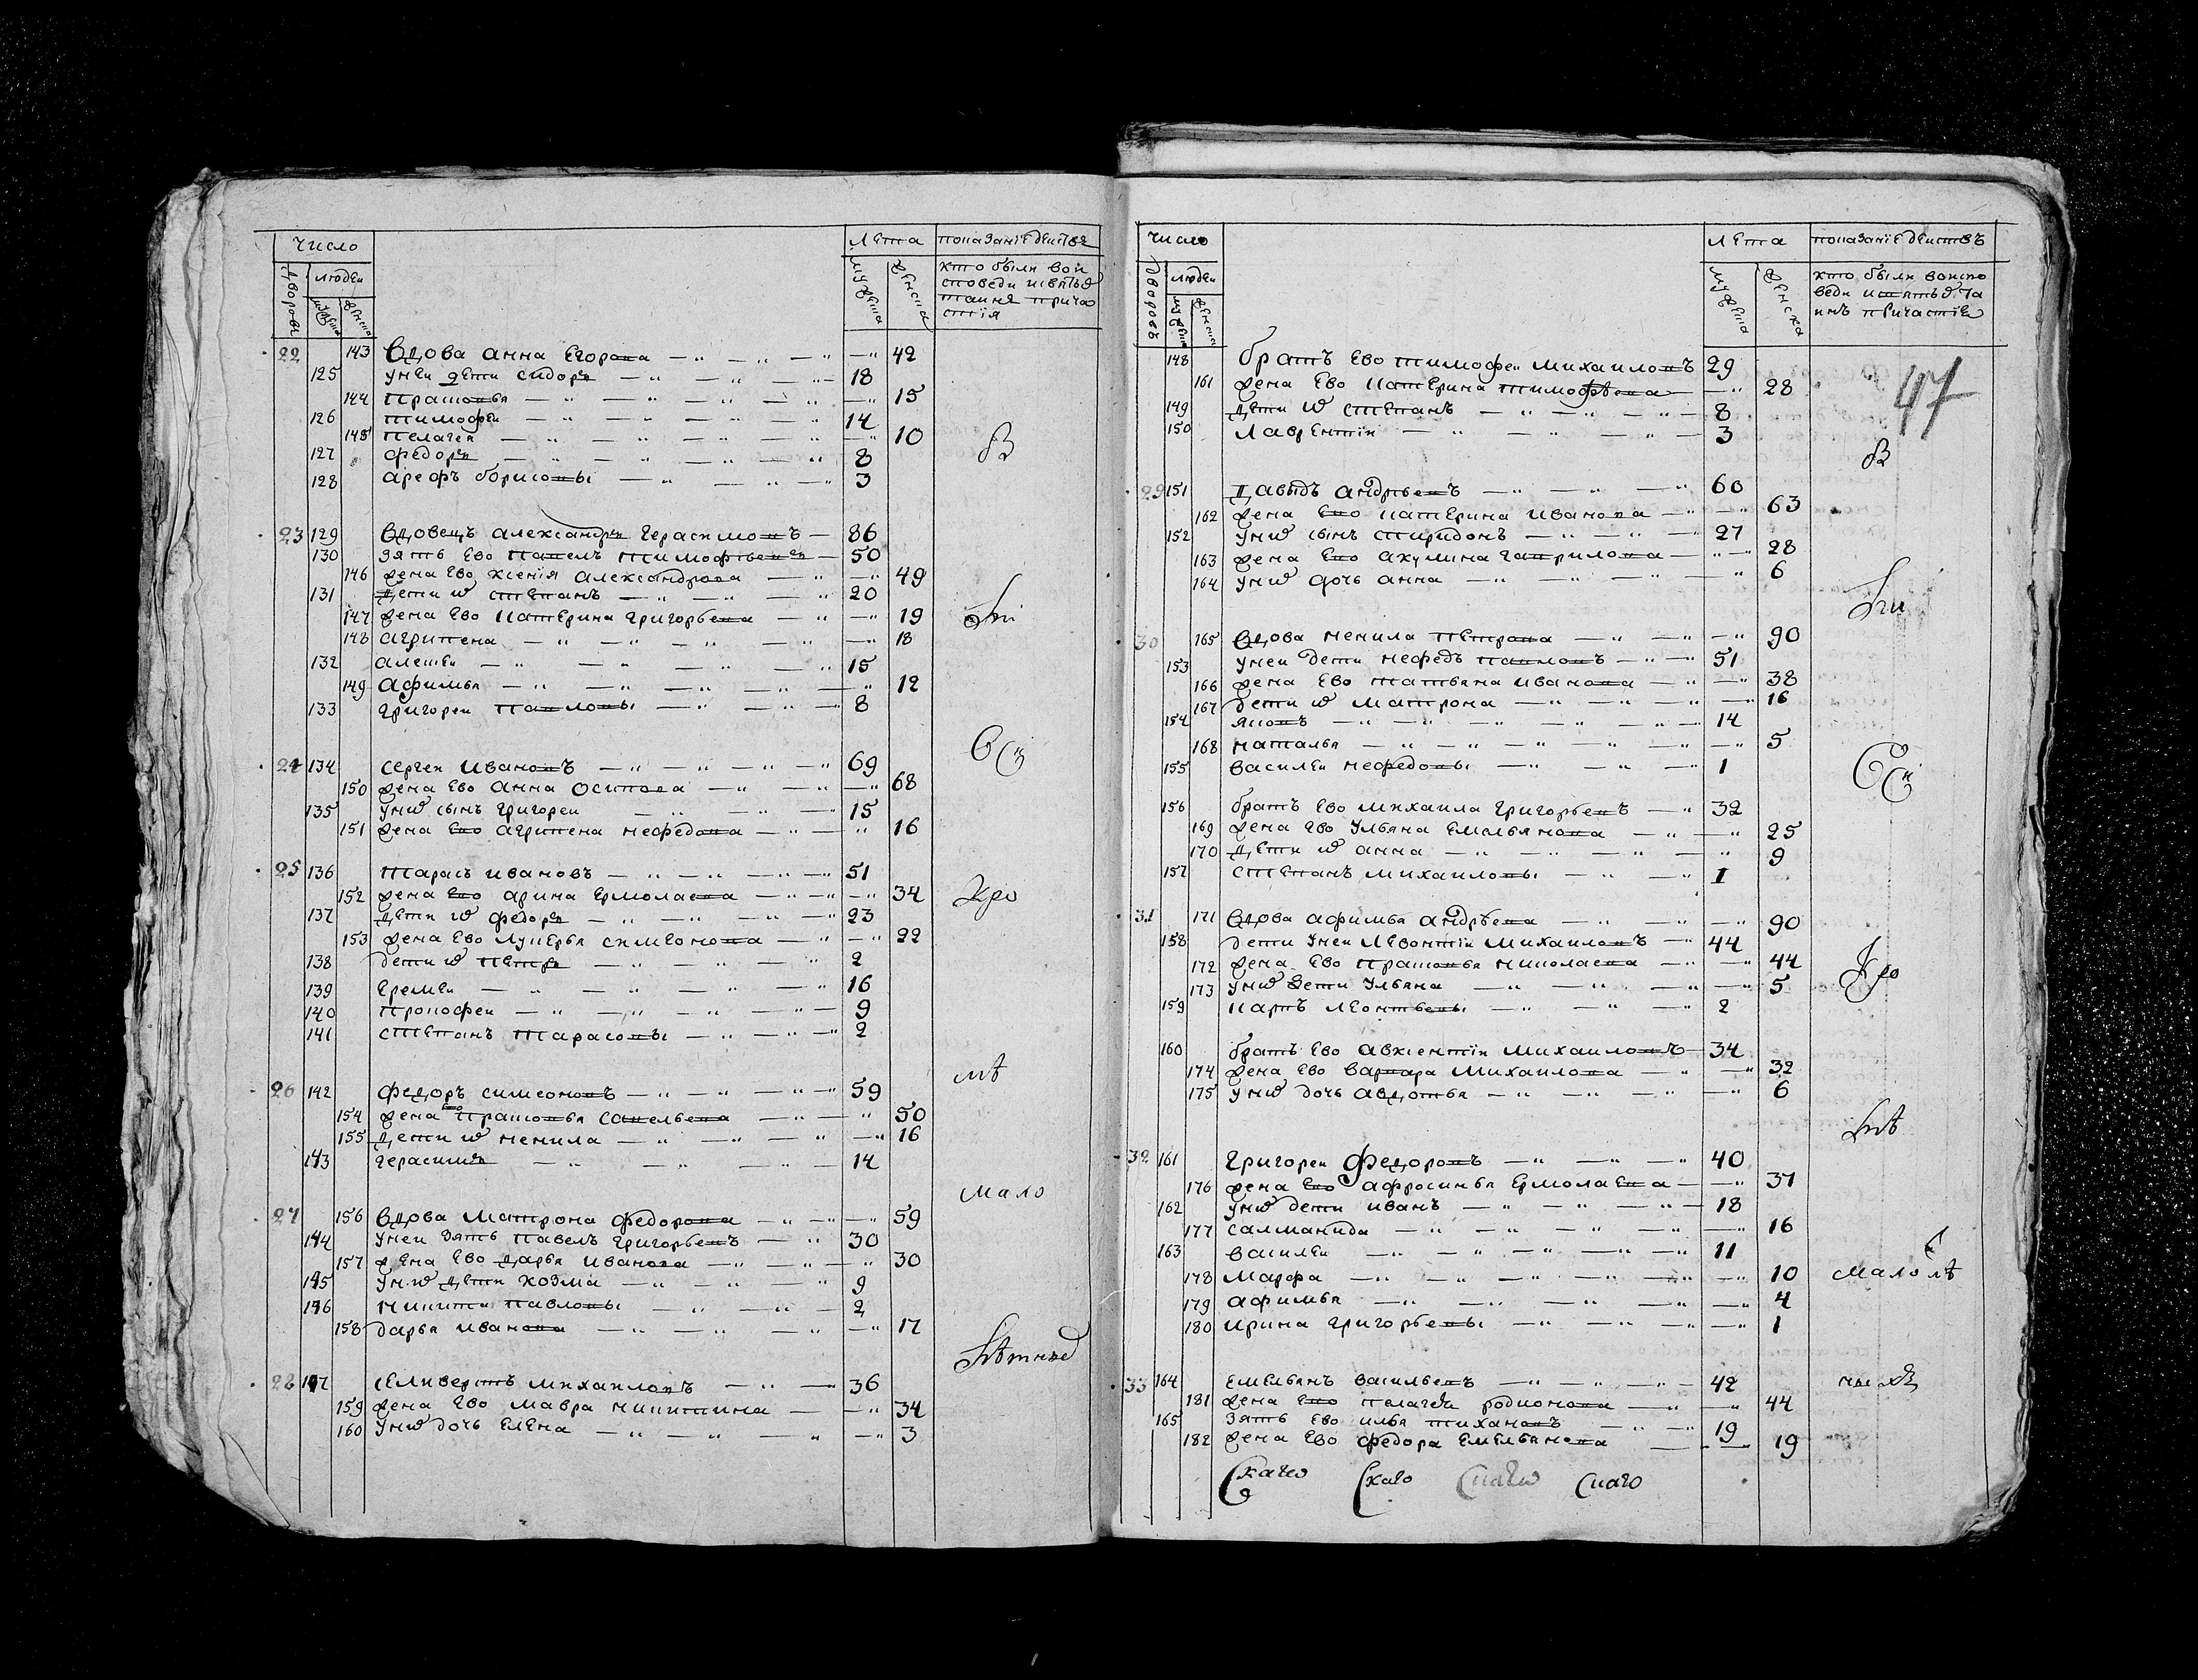 число лѣта показанїе действъ
дворовъ людей мужеска женска кто были во и
споведи и святыхъ
таинъ прича
стїя
22 143 Вдова анна Егорова 42
125 унеи дети сидоръ 18
144 прасковья 15
126 тимофеи 14
145 пелагея 10
127 федоръ 8
128 арефъ борисовы 3
23 129 Вдовецъ александръ герасимовъ 86
130 зять ево павелъ тимофѣевъ 50
146 жена ево ксенїя александрова 49
131 дети ихъ степанъ 20
147 жена ево катерина григорьева 19
148 агрипена 18
132 алексеи 15
149 афимья 12
133 григореи павловы 8
24 134 сергеи ивановъ 69
150 жена ево анна осипова 68
135 унихъ сынъ григореи 15
151 жена ево агрипена нефедова 16
25 136 тарасъ ивановъ 51
152 жена ево арина ермолаева 34
137 дети ихъ федоръ 23
153 жена ево лукерья симеонова 22
138 дети ихъ петръ 2
139 еремеи 16
140 прокофеи 9
141 степанъ тарасовы 2
26 142 федоръ симеоновъ 59
154 жена ево прасковья савельева 50
155 дети ихъ ненила 16
143 герасимъ 14
27 156 вдова матрона федорова 59
144 унеи зять павелъ григорьевъ 30
157 жена ево дарья иванова 30
145 унихъ дети козма 9
146 никита павловы 2
158 дарья иванова 17
28 147 селиверстъ михаиловъ 36
159 жена ево мавра никитина 34
160 унихъ дочь елена 3
В
Сѣ
Кро
мѣ
мало
лѣтныхъ
число лѣта показанїе действъ
дворовъ людей мужеска женска кто были во испо
веди и святыхъ та
инъ причастїя
47
148 братъ ево тимофеи михаиловъ 29
161 жена ево катерина тимофѣева 28
149 дети ихъ степанъ 8
150 лаврентїи 3
29 151 давыдъ андрѣевъ 60
162 жена ево катерина иванова 63
152 унихъ сынъ спиридонъ 27
163 жена ево акулина гаврилова 28
164 унихъ дочь анна 6
30 165 вдова ненила петрова 90
153 унеи дети нефедъ павловъ 51
166 жена ево татьяна иванова 38
167 дети ихъ матрона 16
154 яковъ 14
168 наталья 5
155 василеи нефедовы 1
156 братъ ево михаила григорьевъ 32
169 жена ево ульяна емельянова 25
170 дети ихъ анна 9
157 степанъ михаиловы 1
31 171 вдова афимья андрѣева 90
158 дети унеи левонтїи михаиловъ 44
172 жена ево прасковья николаева 44
173 унихъ дети ульяна 5
159 карпъ леонтьевы 2
160 братъ ево авксентїи михаиловъ 34
174 жена ево варвара михаилова 32
175 унихъ дочь авдотья 6
32 161 григореи федоровъ 40
176 жена ево афросинья ермолаева 37
162 унихъ дети иванъ 18
177 саламанида 16
163 василеи 11
178 марфа 10
179 афимья 4
180 ирина григорьевы 1
33 164 емельянъ васильевъ 42
181 жена ево пелагея родионова 44
165 зять ево илья тихановъ 19
182 жена ево федора емельянова 19
В
Кро
мѣ
малолѣ
тныхъ